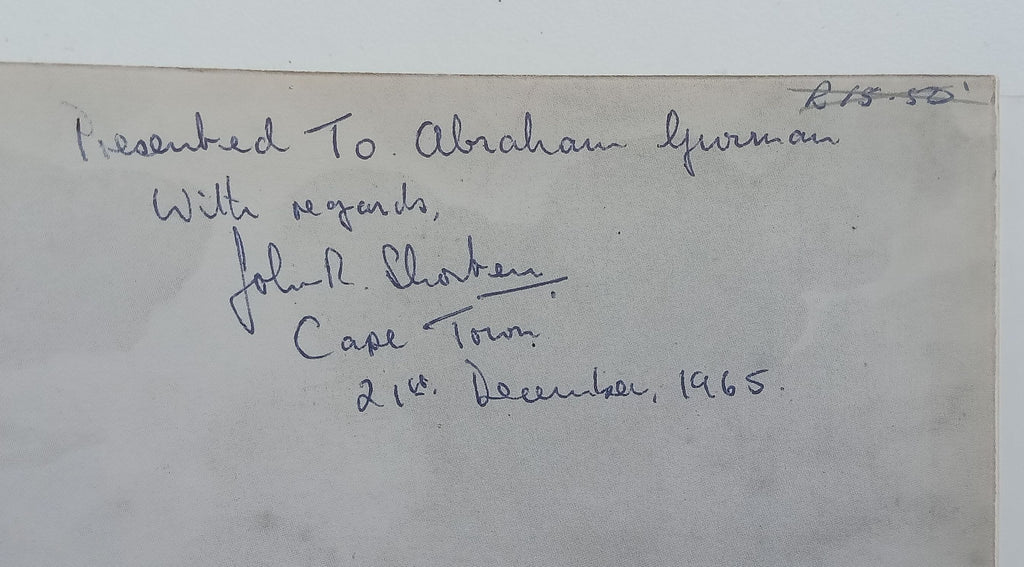 R15-50
Presented To Abraham Gurman
With regards,
John R. Shorten
Cape Town.
21st. December, 1965.